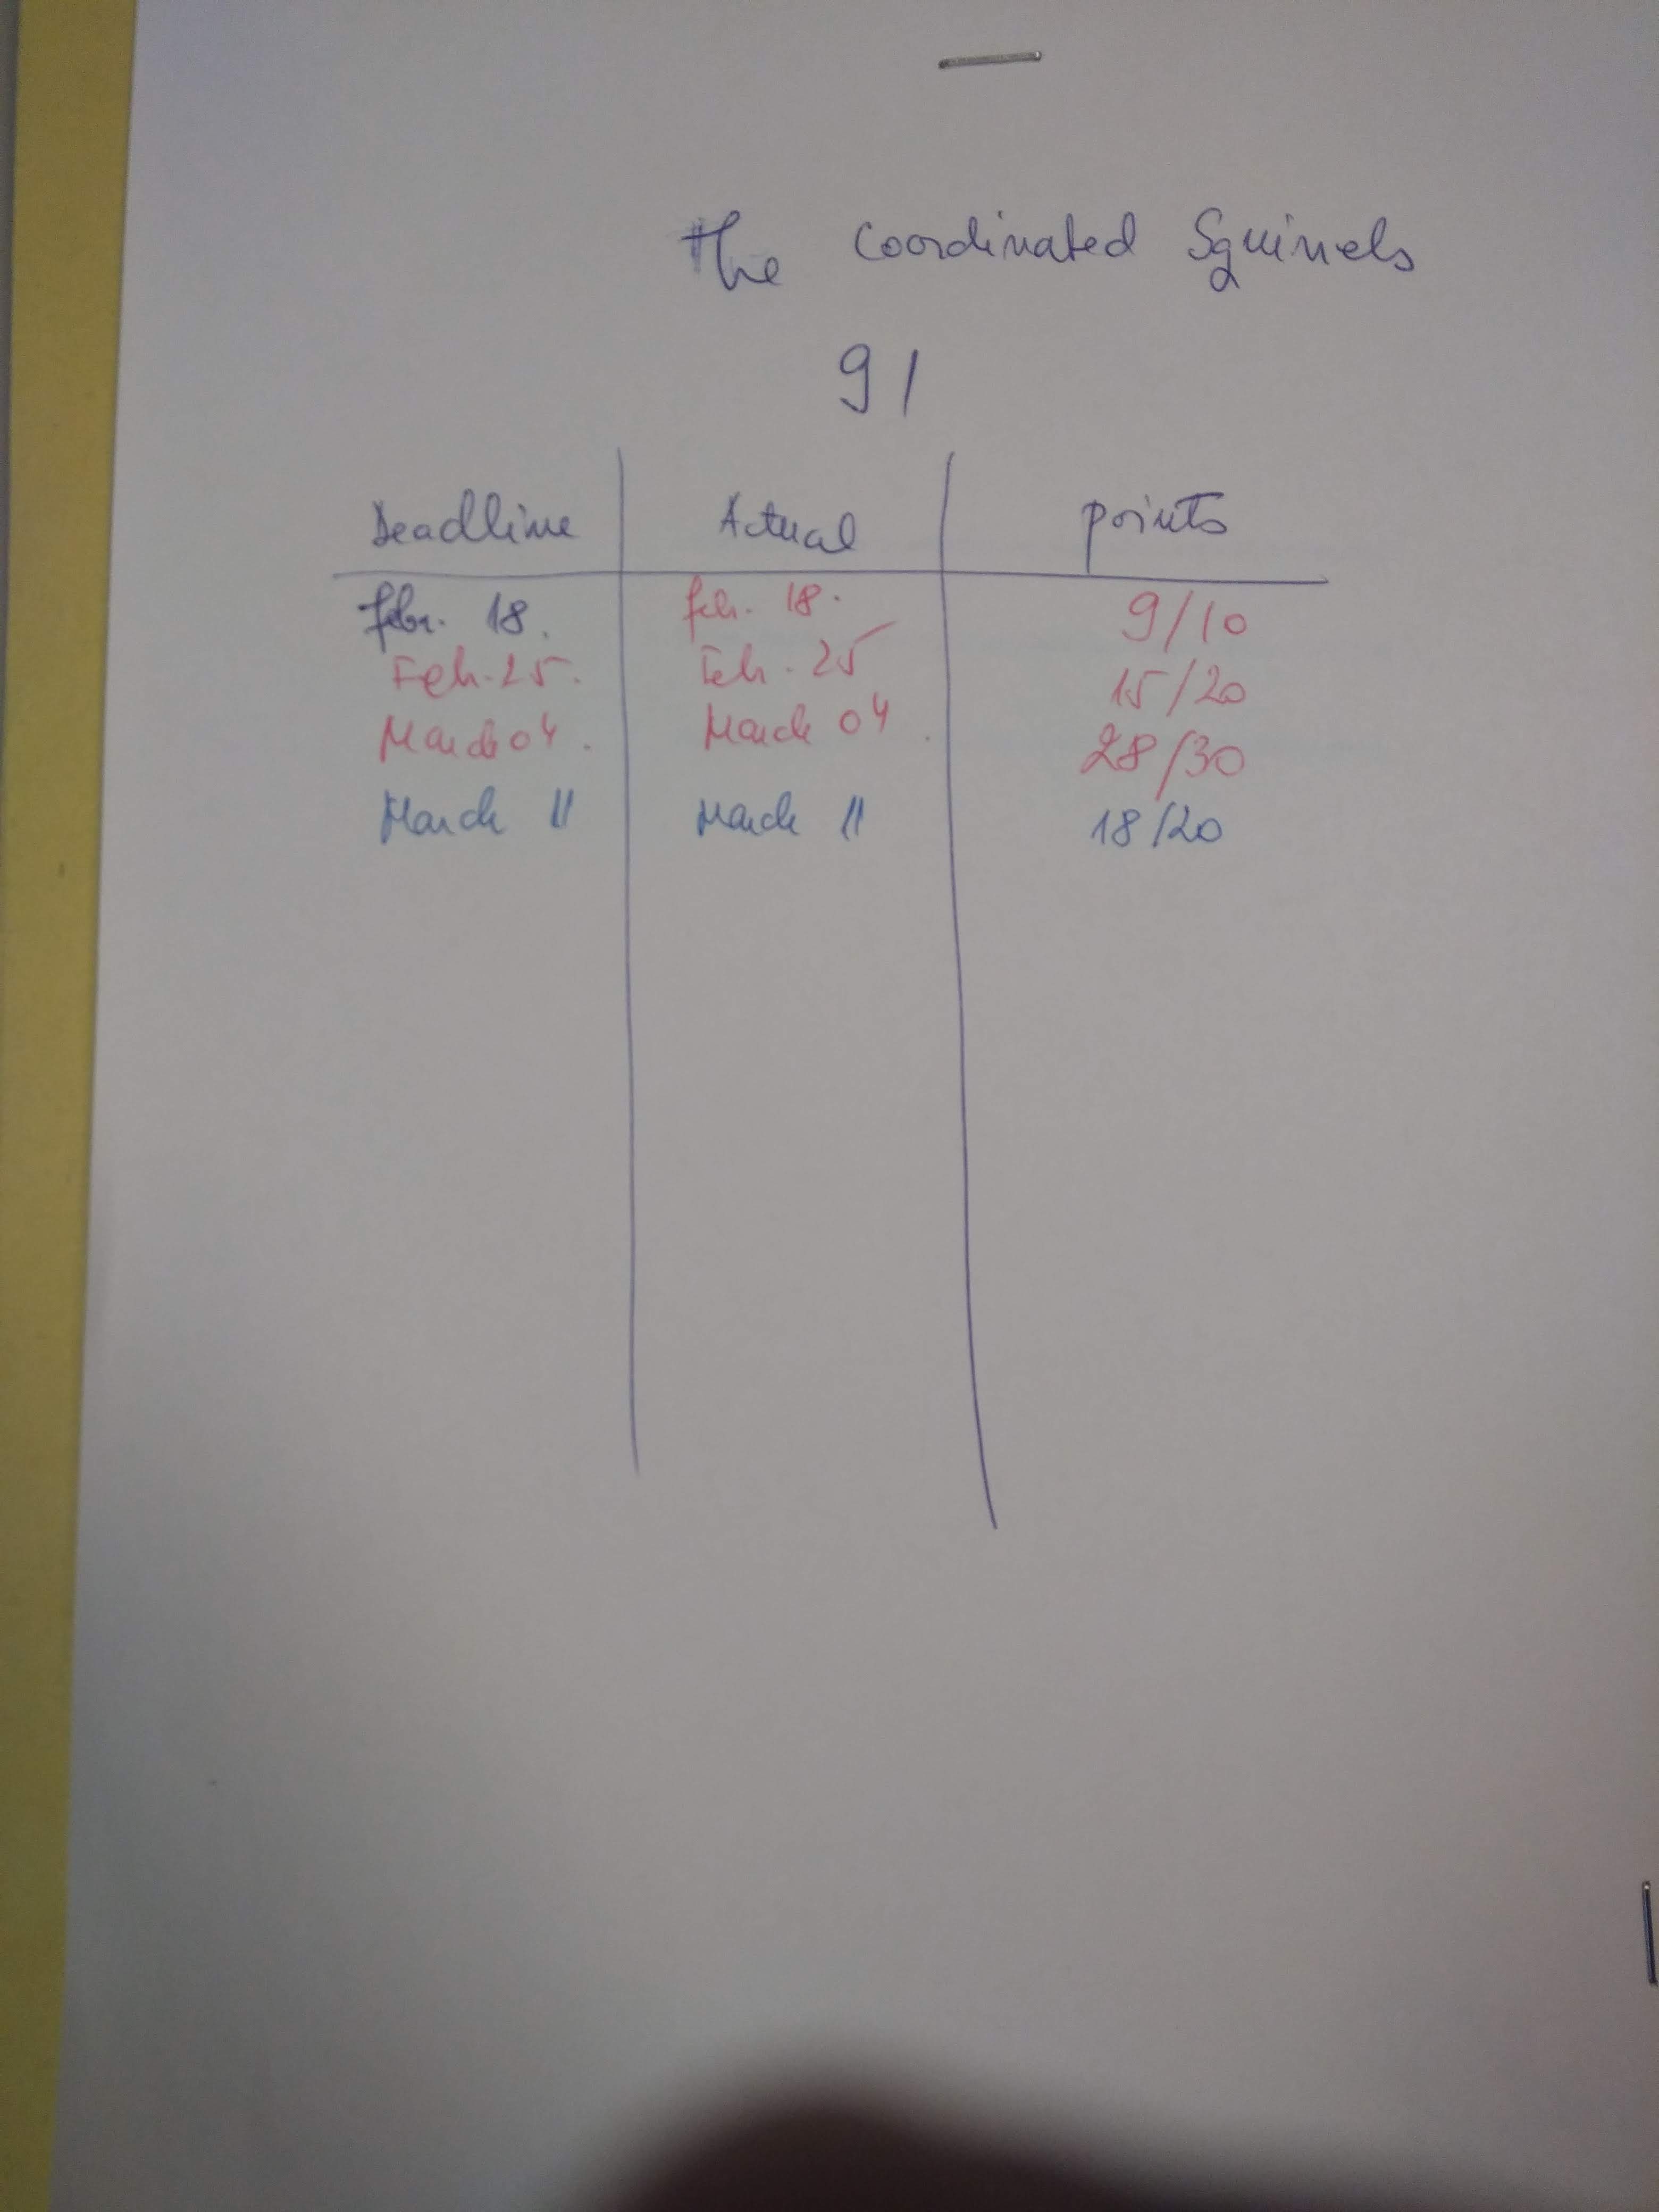 The Coordinated Squirrels
91
Deadline Actual points
febr. 18. feb. 18. 9/10
Feb. 25. Feb. 25 15/20
March 04. March 04. 28/30
March 11 March 11 18/20